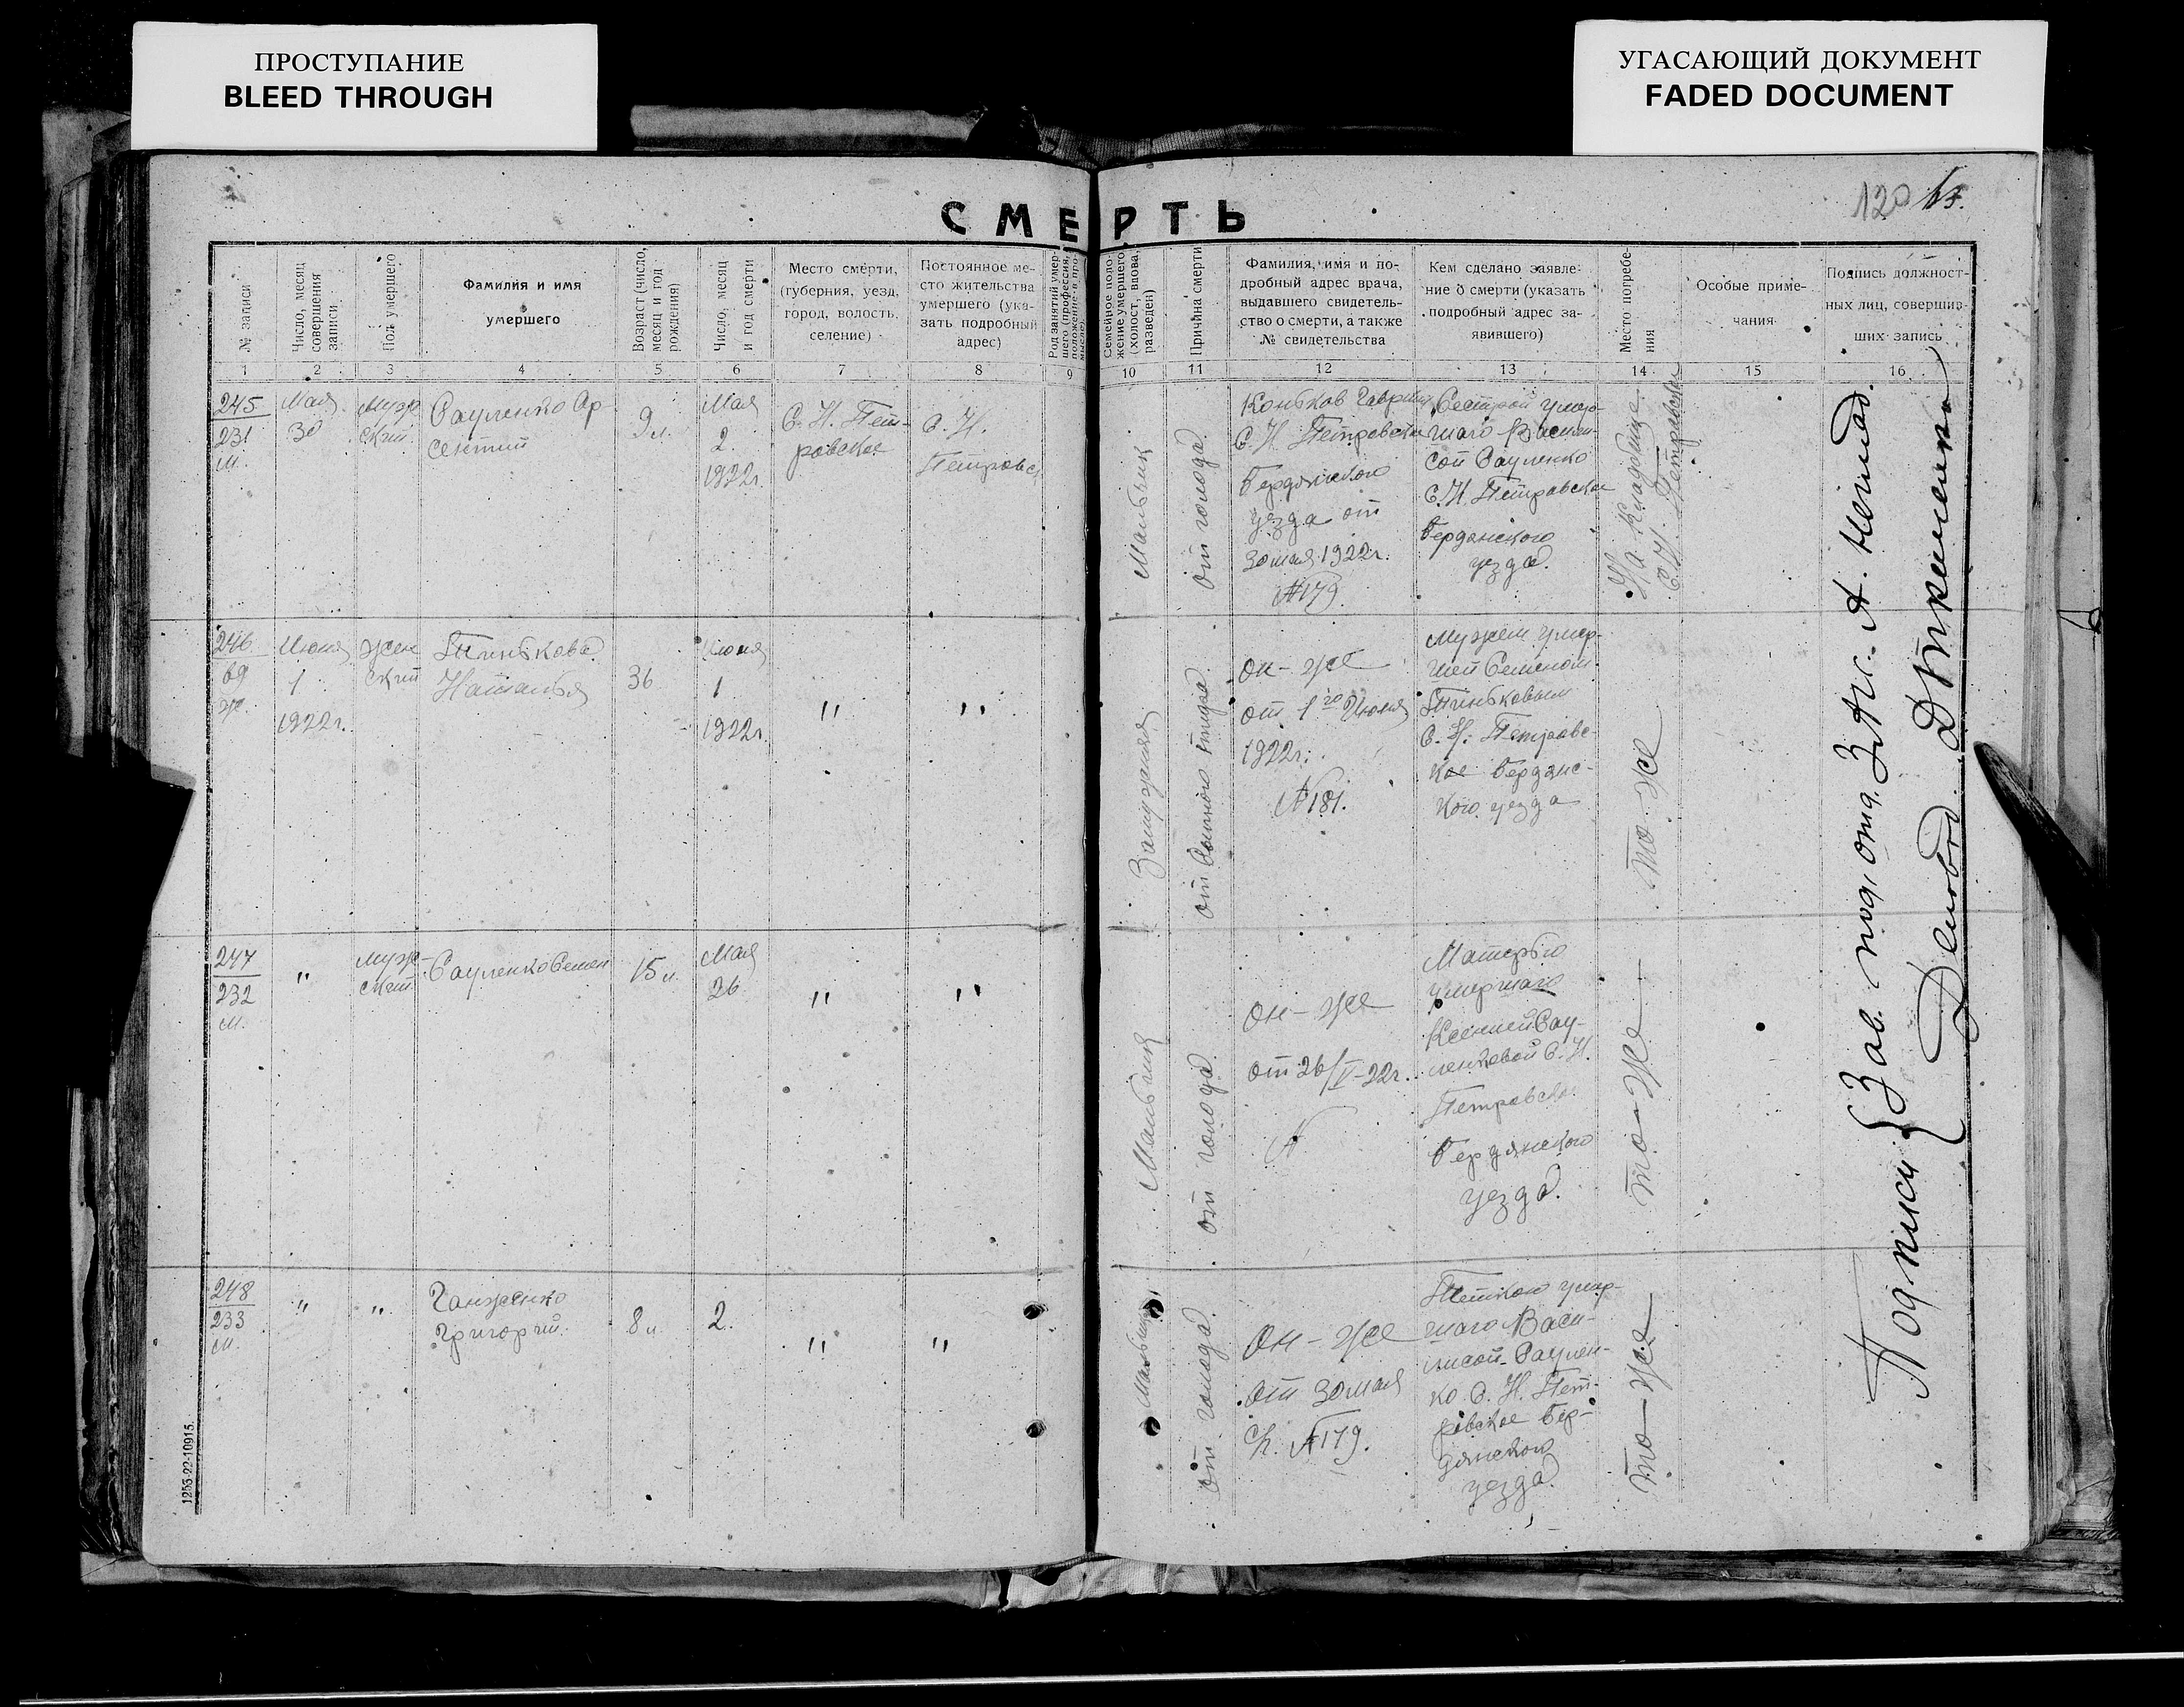 ПРОСТУПАНИЕ
BLEED THROUGH
УГАСАЮЩИЙ ДОКУМЕНТ
FADED DOCUMENT
120
СМЕРТЬ
№ записи
Число, месяц
совершения
записи
Пол умершего
Фамилия и имя
умершего
Возраст (число,
месяц и год
рождения)
Число, месяц
и год смерти
Место смерти,
(губерния, уезд,
город, волость,
селение)
Постоянное ме-
сто жительства
умершего (ука-
зать подробный
адрес)
Род занятий умер-
шего (профессия,
положение в про-
мысле)
Семейное поло-
жение умершего
(холост, вдова,
разведен)
Причина смерти
Фамилия, имя и по-
дробный адрес врача,
выдавшего свидетель-
ство о смерти, а также
№ свидетельства
Кем сделано заявле-
ние о смерти (указать
подробный адрес за-
явившего)
Место погребе-
ния
Особые приме-
чания
Подпись должност-
ных лиц, совершив-
ших запись
1 2 3 4 5 6 7 8 9 10 11 12 13 14 15 16
245
231
м.
Мая
30
Муж
ский
Сауленко Ар
сентий
9 л.
Мая
2
1922г.
С. Н. Пет-
ровское
С. Н.
Петровск
Мальчик
от голода
Коньков Гаврил
С. Н. Петровское
Бердянского
уезда от
30 мая 1922г.
№179
Сестрой умер-
шаго Васили-
сой Сауленко
С. Н. Петровское
Бердянского
уезда.
На кладбище
С. Н. Петровское
246
69
ж.
Июня
1
1922г.
Жен
ский
Пинькова
Наталья
36
Июня
1
1922г.
" "
Замужняя
от брюшного тифа
он-же
от 1го Июня
1922г.
№181.
Мужем умер-
шей Семеном
Пиньковым
С. Н. Петровс-
кое Бердянс-
кого уезда
то-же
247
232
м.
"
Муж-
ский
Сауленко Семен
15 л.
Мая
26
" "
Мальчик
от голода
он-же
от 26/V-22г.
№
Матерью
умершаго
Ксенией Сау-
ленковой С. Н.
Петровское
Бердянского
уезда.
то-же
248
233
м.
" "
Ганженко
Григорий.
8 л.
2.
" "
Мальчик
от голода
он-же
от 30 мая
№179.
Теткою умер-
шаго Васи-
лисой Саулен-
ко С. Н. Пет-
ровское Бер-
дянского
уезда.
то-же
Подписи { Зав. под. отд. Загс. А.
1255-22-10915.